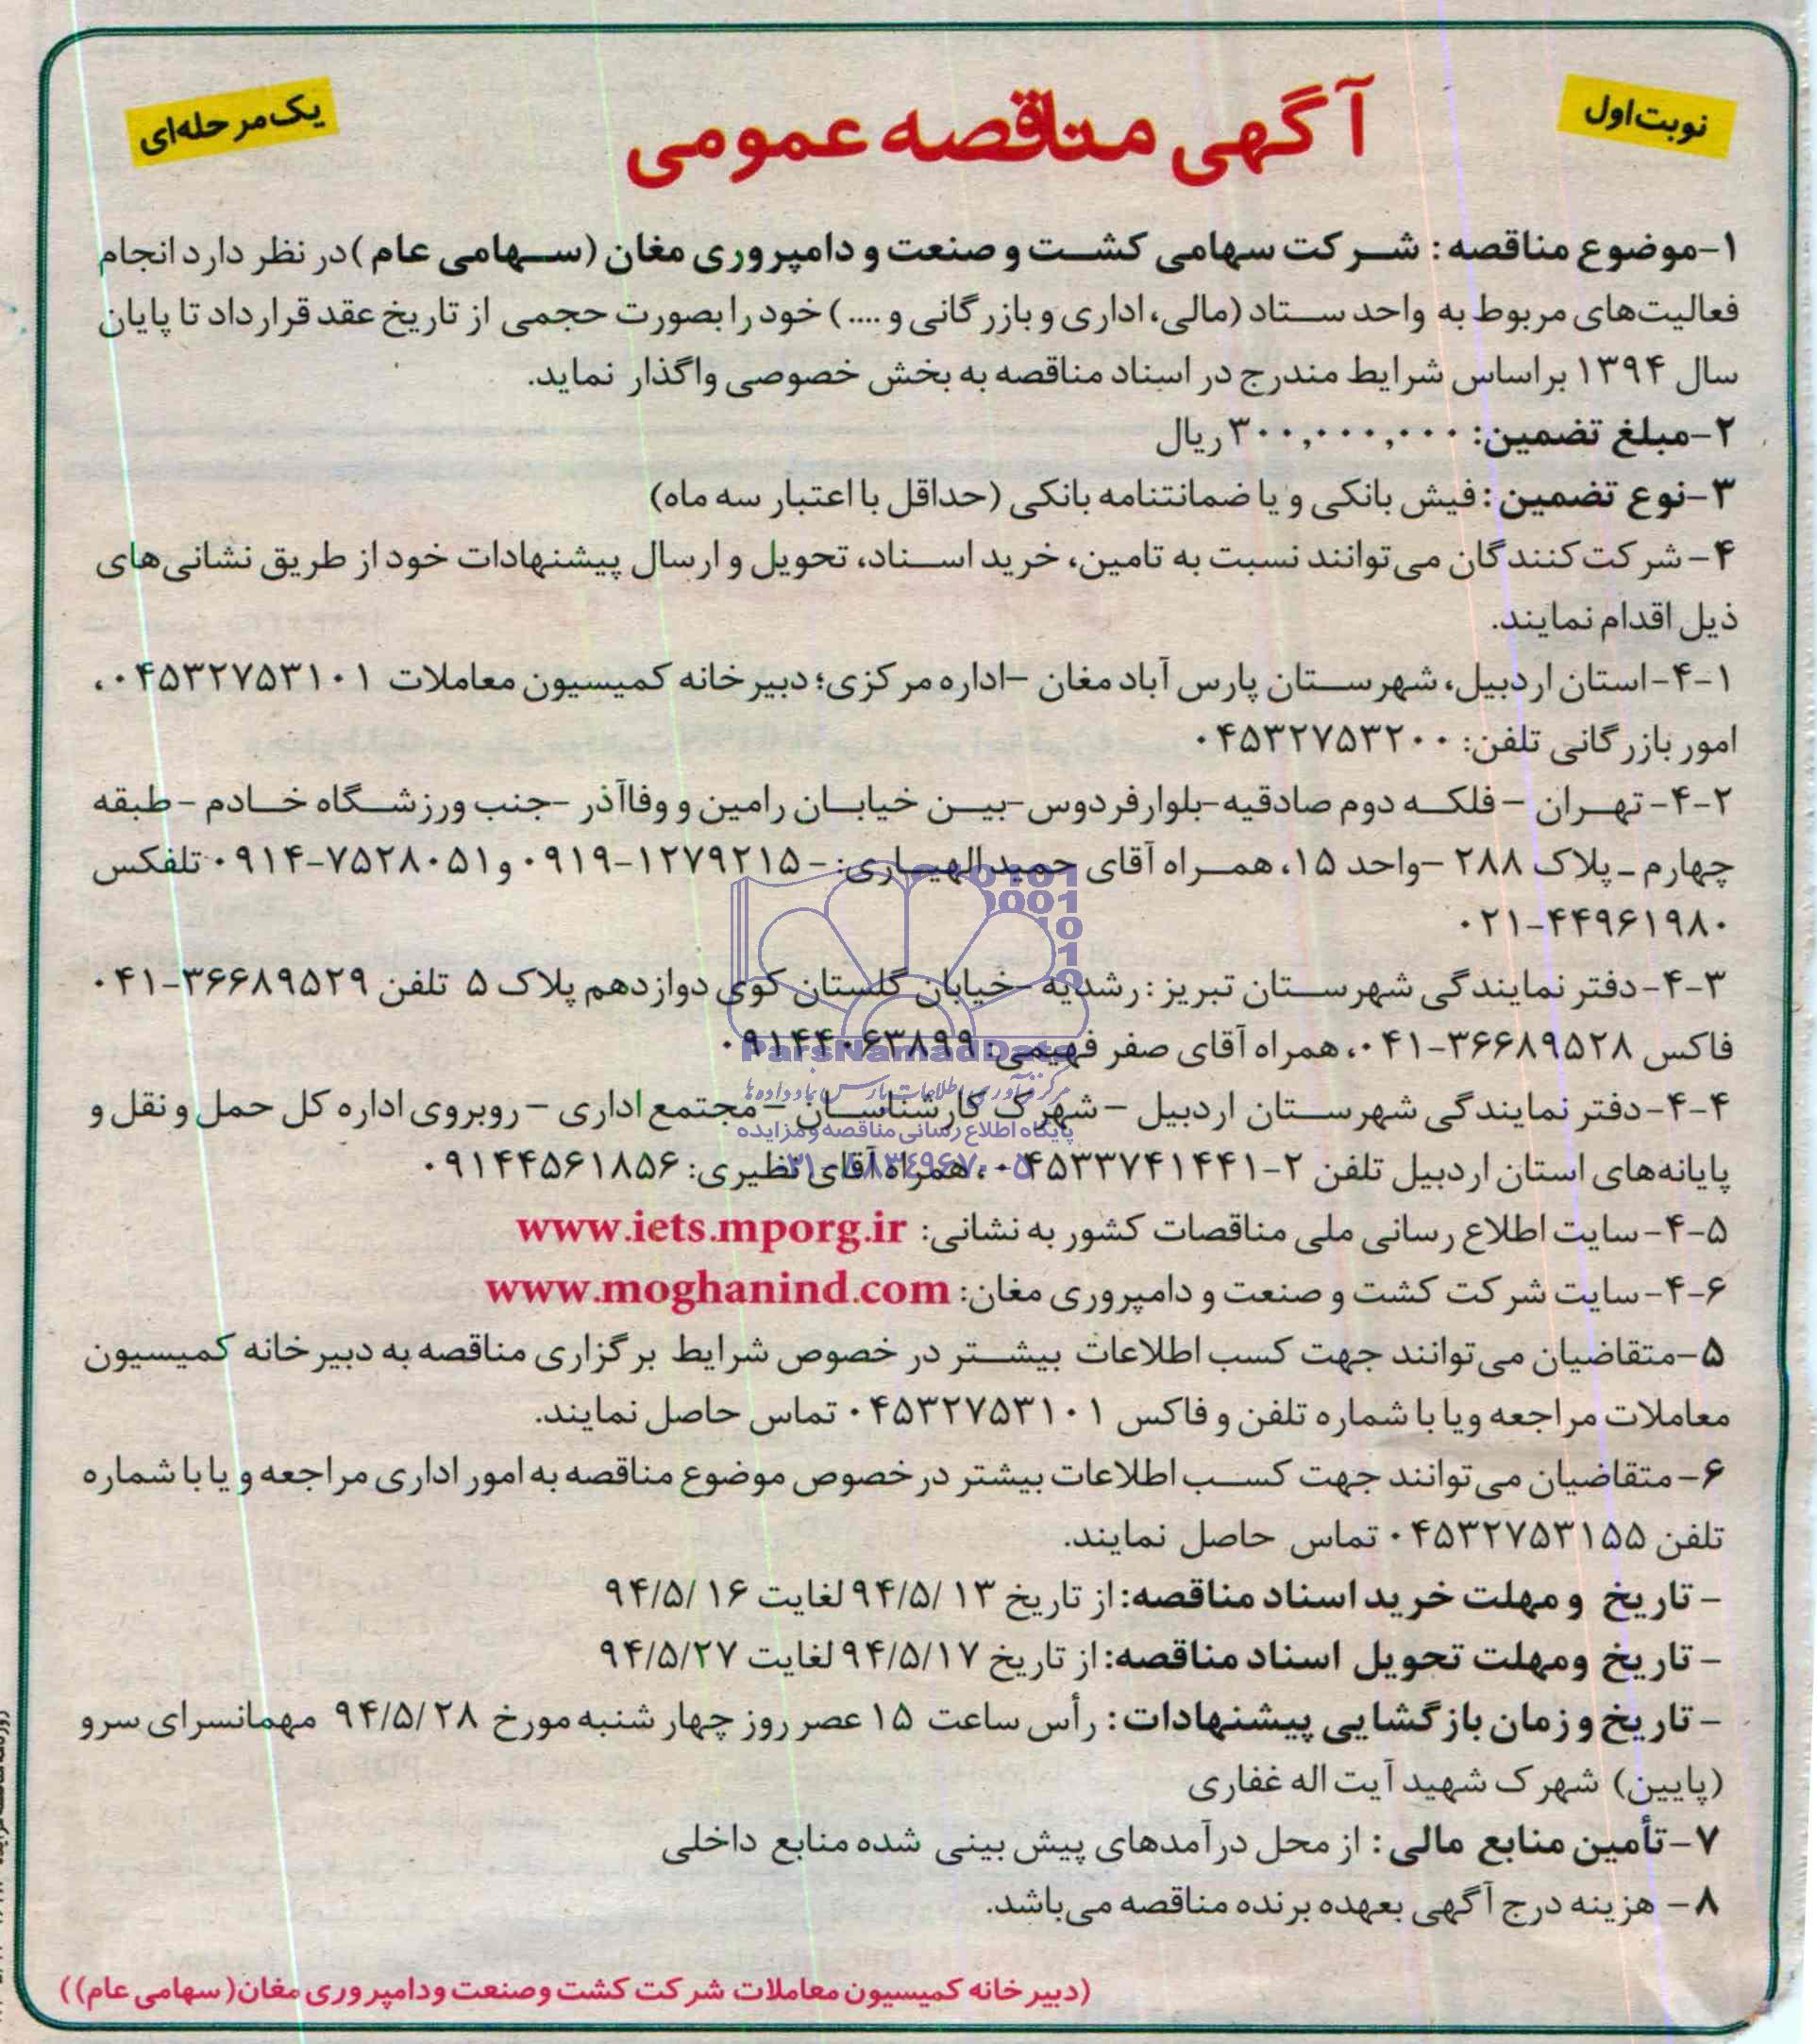 نوبت اول
آگهی مناقصه عمومی
یک مرحله‌ای
۱-موضوع مناقصه: شرکت سهامی کشت و صنعت و دامپروری مغان (سهامی عام) در نظر دارد انجام
فعالیت‌های مربوط به واحد ستاد (مالی، اداری و بازرگانی و ....) خود را بصورت حجمی از تاریخ عقد قرارداد تا پایان
سال ۱۳۹۴ براساس شرایط مندرج در اسناد مناقصه به بخش خصوصی واگذار نماید.
۲-مبلغ تضمین: ۳۰۰,۰۰۰,۰۰۰ ریال
۳-نوع تضمین: فیش بانکی و یا ضمانتنامه بانکی (حداقل با اعتبار سه ماه)
۴- شرکت کنندگان می‌توانند نسبت به تامین، خرید اسناد، تحویل و ارسال پیشنهادات خود از طریق نشانی‌های
ذیل اقدام نمایند.
۴-۱-استان اردبیل، شهرستان پارس آباد مغان -اداره مرکزی؛ دبیرخانه کمیسیون معاملات ۰۴۵۳۲۷۵۳۱۰۱،
امور بازرگانی تلفن: ۰۴۵۳۲۷۵۳۲۰۰
۴-۲-تهران - فلکه دوم صادقیه-بلوار فردوس-بین خیابان رامین و وفاآذر -جنب ورزشگاه خادم - طبقه
چهارم - پلاک ۲۸۸ -واحد ۱۵، همراه آقای حمید الهیاری: - ۰۹۱۹-۱۲۷۹۲۱۵ و ۰۹۱۴-۷۵۲۸۰۵۱ تلفکس
۰۲۱-۴۴۹۶۱۹۸۰
۴-۳-دفتر نمایندگی شهرستان تبریز: رشدیه -خیابان گلستان کوی دوازدهم پلاک ۵ تلفن ۰۴۱-۳۶۶۸۹۵۲۹
فاکس ۰۴۱-۳۶۶۸۹۵۲۸، همراه آقای صفر فهیمی: ۰۹۱۴۴۰۶۳۸۹۹
ParsNamadData
مرکز فرآوری اطلاعات پارس نماد داده‌ها
۴-۴-دفتر نمایندگی شهرستان اردبیل - شهرک کارشناسان - مجتمع اداری - روبروی اداره کل حمل و نقل و
پایگاه اطلاع رسانی مناقصه و مزایده
پایانه‌های استان اردبیل تلفن ۲-۰۴۵۳۳۷۴۱۴۴۱، همراه آقای نظیری: ۰۹۱۴۴۵۶۱۸۵۶
۴-۵-سایت اطلاع رسانی ملی مناقصات کشور به نشانی: www.iets.mporg.ir
۴-۶-سایت شرکت کشت و صنعت و دامپروری مغان: www.moghanind.com
۵-متقاضیان می‌توانند جهت کسب اطلاعات بیشتر در خصوص شرایط برگزاری مناقصه به دبیرخانه کمیسیون
معاملات مراجعه ویا با شماره تلفن و فاکس ۰۴۵۳۲۷۵۳۱۰۱ تماس حاصل نمایند.
۶- متقاضیان می‌توانند جهت کسب اطلاعات بیشتر در خصوص موضوع مناقصه به امور اداری مراجعه و یا با شماره
تلفن ۰۴۵۳۲۷۵۳۱۵۵ تماس حاصل نمایند.
- تاریخ و مهلت خرید اسناد مناقصه: از تاریخ ۹۴/۵/۱۳ لغایت ۹۴/۵/۱۶
- تاریخ ومهلت تحویل اسناد مناقصه: از تاریخ ۹۴/۵/۱۷ لغایت ۹۴/۵/۲۷
- تاریخ و زمان بازگشایی پیشنهادات: رأس ساعت ۱۵ عصر روز چهارشنبه مورخ ۹۴/۵/۲۸ مهمانسرای سرو
(پایین) شهرک شهید آیت اله غفاری
۷-تأمین منابع مالی: از محل درآمدهای پیش بینی شده منابع داخلی
۸- هزینه درج آگهی بعهده برنده مناقصه می‌باشد.
(دبیرخانه کمیسیون معاملات شرکت کشت وصنعت ودامپروری مغان(سهامی عام))